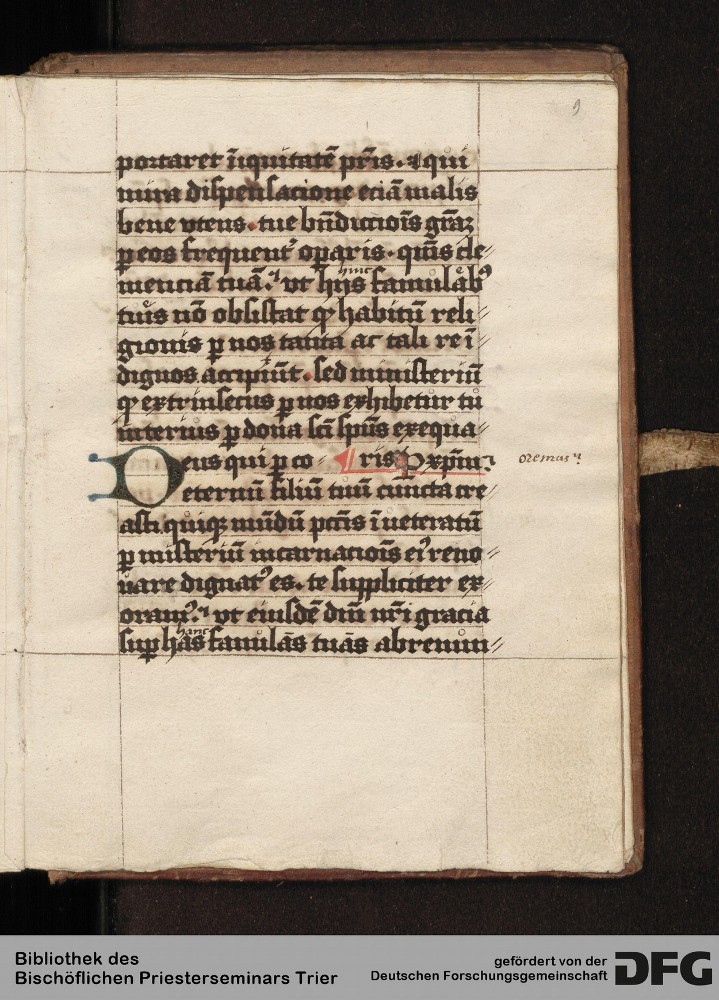 9
portaret īiquitatē pr̄is. ⁊ qui
mira dispensacione eciā malis
bene vtens. tue bn̄dictiōis grāꝫ
ꝑ eos frequent᷒ oꝑaris. qm̄s cle⸗
menciā tuā. vt hijs famulab⁹
hinc
tuis nō obsistat ꝙ habitū reli⸗
gionis ꝑ nos tanta ac tali re ī⸗
dignos accipiūt. sed ministeriū
ꝙ extrinsecus ꝑ nos exhibetur tu
interius ꝑ dona sc̄i sp̄us exequa⸗
Deus qui ꝑ co⸗ ¶ ris Ꝑ xp̄m
oremus
eternū filiū tuū cūncta cre⸗
asti quiqꝫ mūdū pcc̄is īueteratū
ꝑ misteriū incarnaciōis ei᷒ reno⸗
uare dignat᷒ es. te suppliciter ex⸗
oram᷒. vt eiusdē dn̄i nr̄i gracia
suꝑ hās famulās tuās abrenun⸗
hanc
Bibliothek des
Bischöflichen Priesterseminars Trier
gefördert von der
Deutschen Forschungsgemeinschaft
DFG